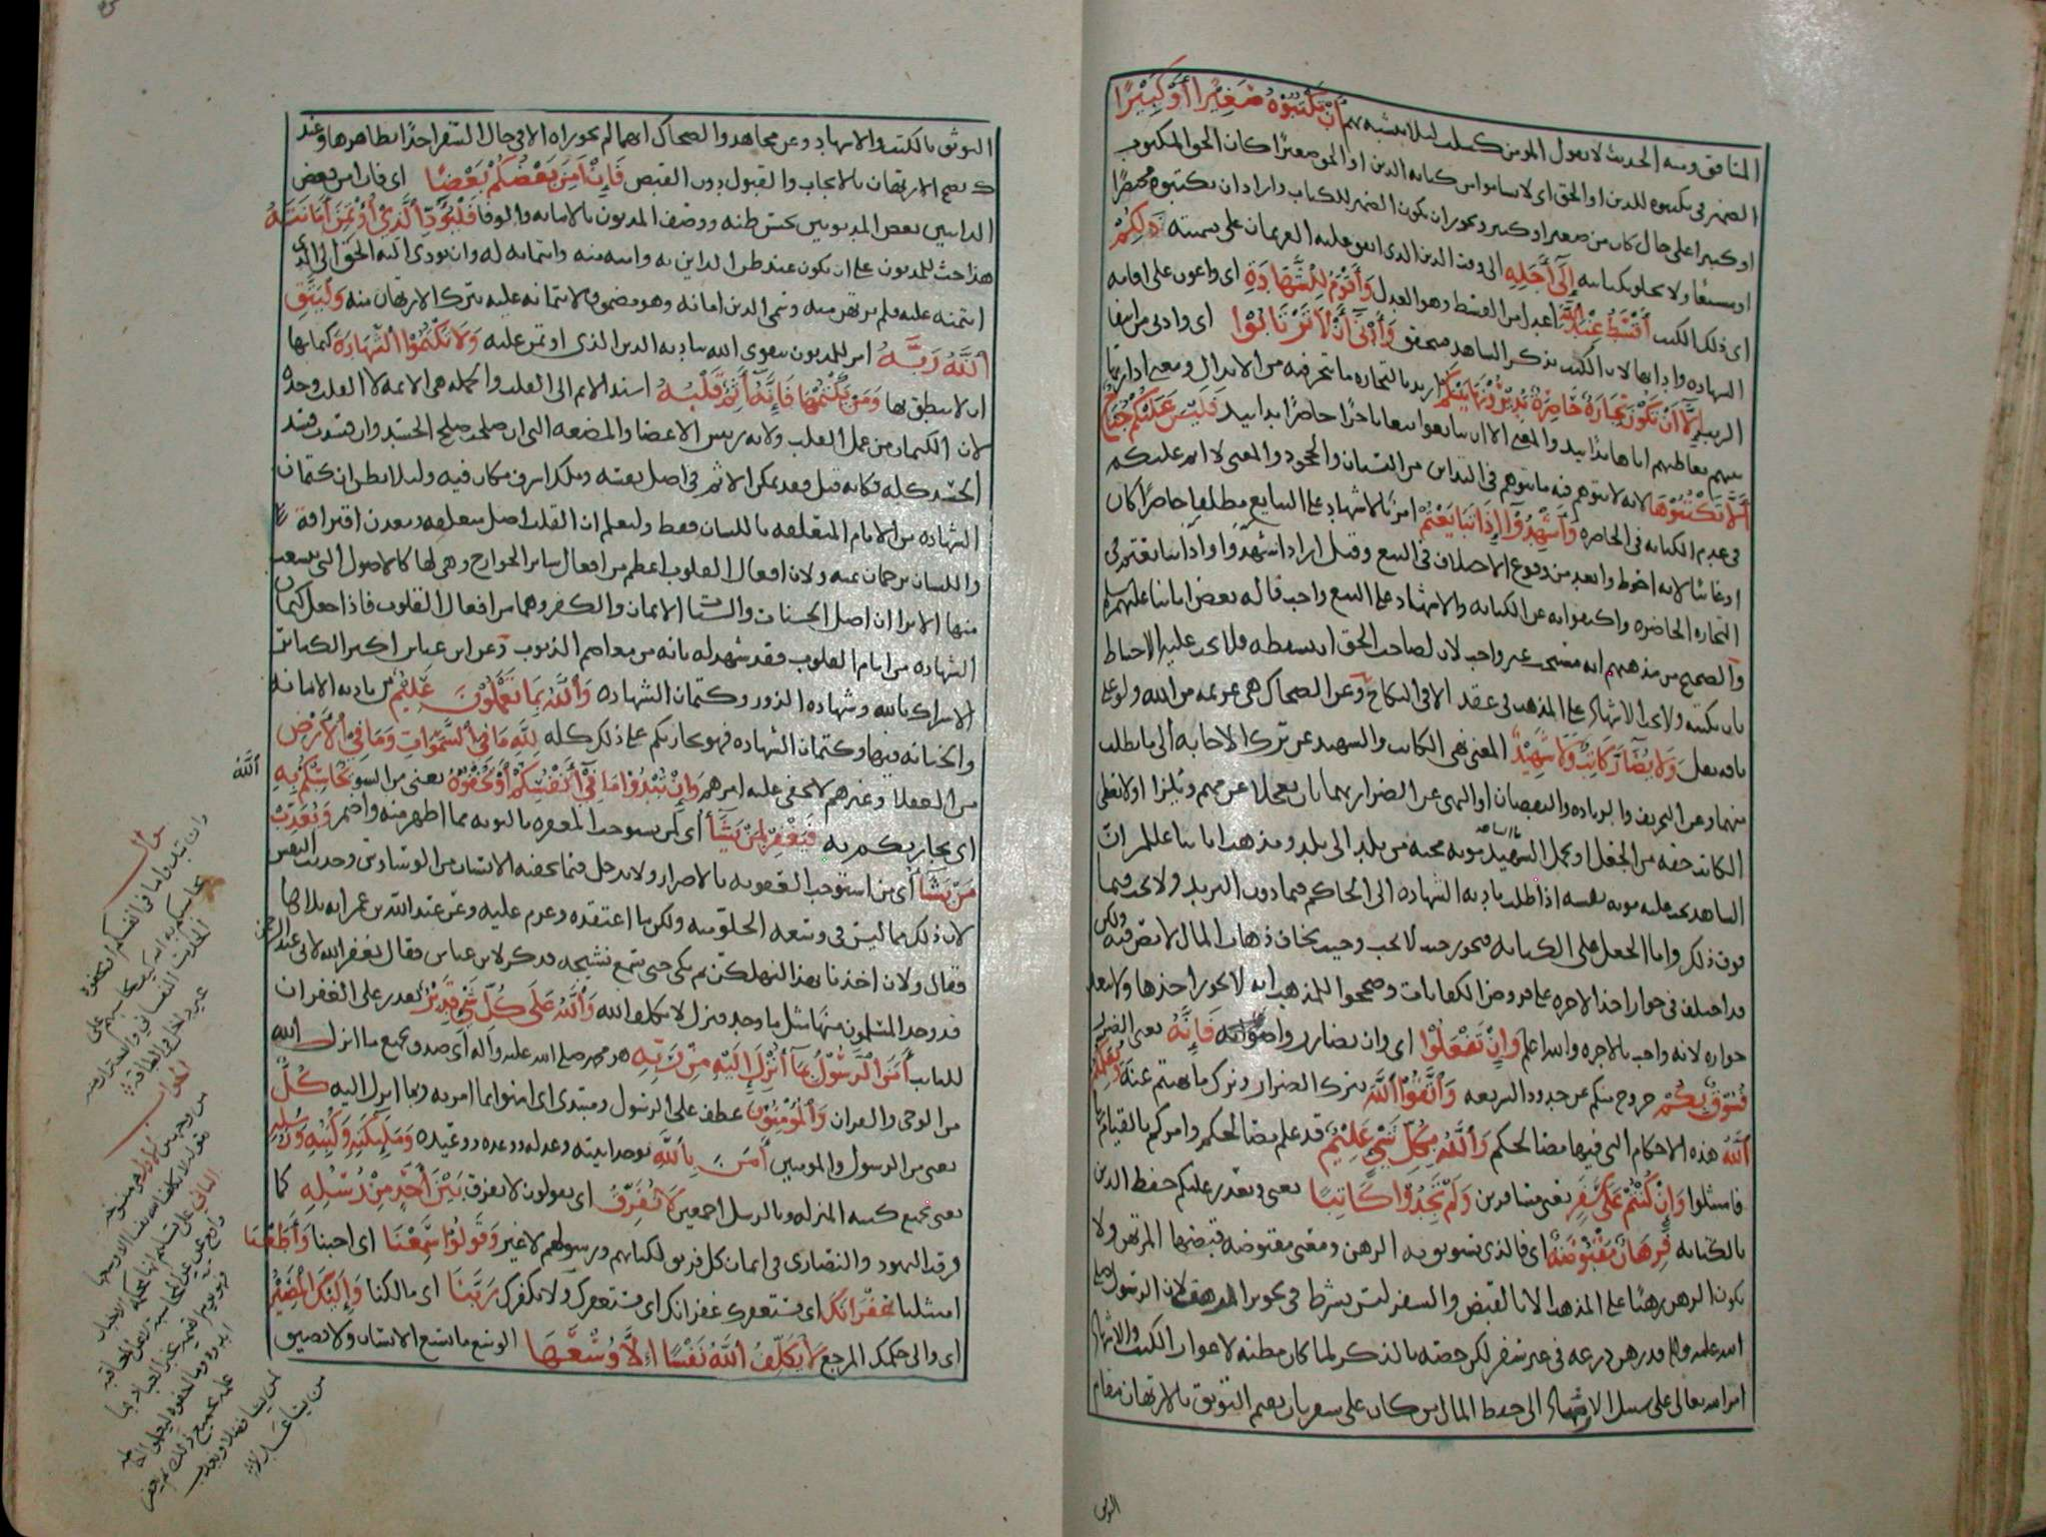 المنافق ومنه الحديث لا يقول المومن كسلت ليلا يتشبه بهم أَنْ تَكْتُبُوْهُ صَغِيْرًا أَوْ كَبِيْرًا
الضمير في تكتبوه للدين او الحق اي لا تساموا من كتابه الدين او الحق صغيرًا كان الحق المكتوب
او كبيرا على حال كان من صغير او كبير ويجوز ان يكون الضمير للكتاب واراد ان يكتبوه مختصرًا
او مشبعًا ولا يخلو بكتابته إِلَى أَجَلِهِ الى وقت الدين الذى اتفق عليه الغريمان على تسميته ذَلِكُمْ
اي ذلك الكتب أَقْسَطُ عِنْدَ اللَّهِ اعدل من القسط وهو العدل وَأَقْوَمُ لِلشَّهَادَةِ اى واعون على اقامه
الشهاده وادايها لان الكتب يذكر الشاهد فيتحقق وَأَدْنَى أَنْ لَا تَرْتَابُوْا اى وادنى من انتفا
الريب إِلَّا أَنْ تَكُوْنَ تِجَارَةً حَاضِرَةً تُدِيْرُوْنَهَا بَيْنَكُمْ اريد بالتجاره ما يتجر فيه من الابدال ومعنى ادارتها
بينهم تعاطيهم اياها يدًا بيد والمعنى الا ان تتبايعوا بيعا ناجزًا حاضرًا يدا بيد فَلَيْسَ عَلَيْكُمْ جُنَاحٌ
أَلَّا تَكْتُبُوْهَا لانه لا يتوهم فيه ما يتوهم في التداين من النسيان والجحود والمعنى لا اثم عليكم
في عدم الكتابه في الحاضره وَأَشْهِدُوْا إِذَا تَبَايَعْتُمْ امر بالاشهاد على التبايع مطلقا حاضرًا كان
او غائبًا لانه احوط وابعد من وقوع الاختلاف في البيع وقيل اراد اشهدوا اذا تبايعتم في
التجاره الحاضره واكتفوا به عن الكتابه والاشهاد على البيع واجب قاله بعض ايمتنا عليهم السلم
والصحيح من مذهبهم انه مستحب غير واجب لان لصاحب الحق ان يسقطه فلا يجب عليه الاحتياط
بان يكتبه ولا يجب الاشهاد على المذهب في عقد الا في النكاح وعن الضحاك هى عزيمه من الله ولو على
باقه بقل وَلَا يُضَآرَّ كَاتِبٌ وَلَا شَهِيْدٌ المعنى نهي الكاتب والشهيد عن ترك الاجابه الى ما يطلب
منهما وعن التحريف والزياده والنقصان او النهى عن الضرار بهما بان يعجلا عن مهم ويلزا او لا يعطى
الكاتب حقه من الجعل او يحمل الشهيد مونه مجيه من بلد الى بلد ومذهب ايمتنا عليهم السلم ان
الشاهد يجب عليه مونه نفسه اذا طلب تاديه الشهاده الى الحاكم فيما دون البريد ولا يجب فيما
فوق ذلك واما الجعل على الكتابه فيجوز حيث لا تجب وحيث يخاف ذهاب المال لا يقض فيه ولكن
قد اختلف في جواز اخذ الاجره على فروض الكفايات وصححوا للمذهب انه لا يجوز اخذها ولا يعلم
جوازه لانه واجب بالاجره والله اعلم وَإِنْ تَفْعَلُوْا اى وان تضاروا فَإِنَّهُ يعني الضرار
فُسُوْقٌ بِكُمْ خروج منكم عن حدود الشريعه وَاتَّقُوْا اللَّهَ بترك الضرار وترك ما نهيتم عنه وَيُعَلِّمُكُمُ
اللَّهُ هذه الاحكام التى فيها مصالحكم وَاللَّهُ بِكُلِّ شَيْءٍ عَلِيْمٌ قد علم مصالحكم وامركم بالقيام بها
فامتثلوا وَإِنْ كُنْتُمْ عَلَى سَفَرٍ يعنى مسافرين وَلَمْ تَجِدُوْا كَاتِبًا يعنى وتعذر عليكم حفظ الدين
بالكتابه فَرِهَانٌ مَقْبُوْضَةٌ اى فالذى يستوثق به الرهن ومعنى مقبوضه قبضها المرتهن ولا
يكون الرهن رهنًا على المذهب الا بالقبض والسفر ليس بشرط في تجويز الرهن لان الرسول صلى
الله عليه واله قد رهن درعه في غير سفر لكن خصه بالذكر لما كان مظنه لاعواز الكتب والاشهاد
امر الله تعالى على سبيل الارشاد الى حفظ المال من كان على سفر بان يقيم التوثق بالارتهان مقام
التوثق
التوثق بالكتب والاشهاد وعن مجاهد والضحاك انهما لم يجوزاه الا في حال السفر اخذًا بظاهرها وعند
ك يصح الارتهان بالايجاب والقبول دون القبض فَإِنْ أَمِنَ بَعْضُكُمْ بَعْضًا اى فان امن بعض
الداينين بعض المديونين بحسن ظنه ووصف المديون بالامانه والوفا فَلْيُؤَدِّ الَّذِيْ اؤْتُمِنَ أَمَانَتَهُ
هذا حث للمديون على ان يكون عند ظن الداين به وامنه منه وائتمانه له وان يودى اليه الحق الذى
ائتمنه عليه فلم يرتهن منه وسمى الدين امانه وهو مضمون لائتمانه عليه بترك الارتهان منه وَلْيَتَّقِ
اللَّهَ رَبَّهُ امر للمديون بتقوى الله بتاديه الدين الذى اوتمن عليه وَلَا تَكْتُمُوْا الشَّهَادَةَ كتمانها
ان لا ينطق بها وَمَنْ يَكْتُمْهَا فَإِنَّهُ آثِمٌ قَلْبُهُ اسند الاثم الى القلب والجمله هى الاثمه لا القلب وحده
لان الكتمان من عمل القلب ولانه رييس الاعضا والمضغه التى ان صلحت صلح الجسد وان فسدت فسد
الجسد كله فكانه قيل فقد تمكن الاثم في اصل نفسه وملك اشرف مكان فيه وليلا يظن ان كتمان
الشهاده من الاثام المتعلقه باللسان فقط وليعلم ان القلب اصل متعلقه ومعدن اقترافه
واللسان ترجمان عنه ولان افعال القلوب اعظم من افعال سائر الجوارح وهى لها كالاصول التى تتشعب
منها الا ترا ان اصل الحسنات والسيئات الايمان والكفر وهما من افعال القلوب فاذا جعل كتمان
الشهاده من اثام القلوب فقد شهد له بانه من معاظم الذنوب وعن ابن عباس اكبر الكبائر
الاشراك بالله وشهاده الزور وكتمان الشهاده وَاللَّهُ بِمَا تَعْمَلُوْنَ عَلِيْمٌ من تاديه الامانه
والخيانه فيها وكتمان الشهاده فهو يجازيكم على ذلك كله لِلَّهِ مَا فِي السَّمَوَاتِ وَمَا فِي الْأَرْضِ
من العقلا وغيرهم لا يخفى عليه امرهم وَإِنْ تُبْدُوْا مَا فِيْ أَنْفُسِكُمْ أَوْ تُخْفُوْهُ يعنى من السو يُحَاسِبْكُمْ بِهِ اللَّهُ
اى يجازيكم به فَيَغْفِرُ لِمَنْ يَشَآءُ اى لمن يستوجب المغفره بالتوبه مما اظهر منه واضمر وَيُعَذِّبُ
مَنْ يَشَآءُ اى من استوجب العقوبه بالاصرار ولا يدخل فيما يخفيه الانسان من الوساوس وحديث النفس
لان ذلك مما ليس في وسعه الخلو منه ولكن ما اعتقده وعزم عليه وعن عبد الله بن عمر انه تلاها
فقال ولان اخذنا بهذا لنهلكن ثم بكى حتى سمع نشيجه فذكر لابن عباس فقال يغفر الله لابى عبد الرحمن
قد وجد المسلمون منها مثل ما وجد فنزل لا يكلف الله وَاللَّهُ عَلَى كُلِّ شَيْءٍ قَدِيْرٌ يقدر على الغفران
للتايب آمَنَ الرَّسُوْلُ بِمَا أُنْزِلَ إِلَيْهِ مِنْ رَبِّهِ هو محمد صلى الله عليه واله اى صدق بجميع ما انزل الله
من الوحى والقران وَالْمُؤْمِنُوْنَ عطف على الرسول ومبتدى اى امنوا بما امر به وبما انزل اليه كُلٌّ
يعنى من الرسول والمومنين آمَنَ بِاللَّهِ بوحدانيته وعدله ووعده ووعيده وَمَلَئِكَتِهِ وَكُتُبِهِ وَرُسُلِهِ
يعنى بجميع كتبه المنزله وبالرسل اجمعين لَا نُفَرِّقُ اى يقولون لا نفرق بَيْنَ أَحَدٍ مِنْ رُسُلِهِ كما
فرقت اليهود والنصارى في ايمان كل فريق لكتابهم ورسولهم لا غير وَقَالُوْا سَمِعْنَا اى اجبنا وَأَطَعْنَا
امتثلنا غُفْرَانَكَ اى نستغفرك غفرانك اى نستغفرك ولا نكفرك رَبَّنَا اى مالكنا وَإِلَيْكَ الْمَصِيْرُ
اى والى حكمك المرجع لَا يُكَلِّفُ اللَّهُ نَفْسًا إِلَّا وُسْعَهَا الوسع ما يسع الانسان ولا يضيق
سوال
وان تبدوا ما في انفسكم او تخفوه
الجواب